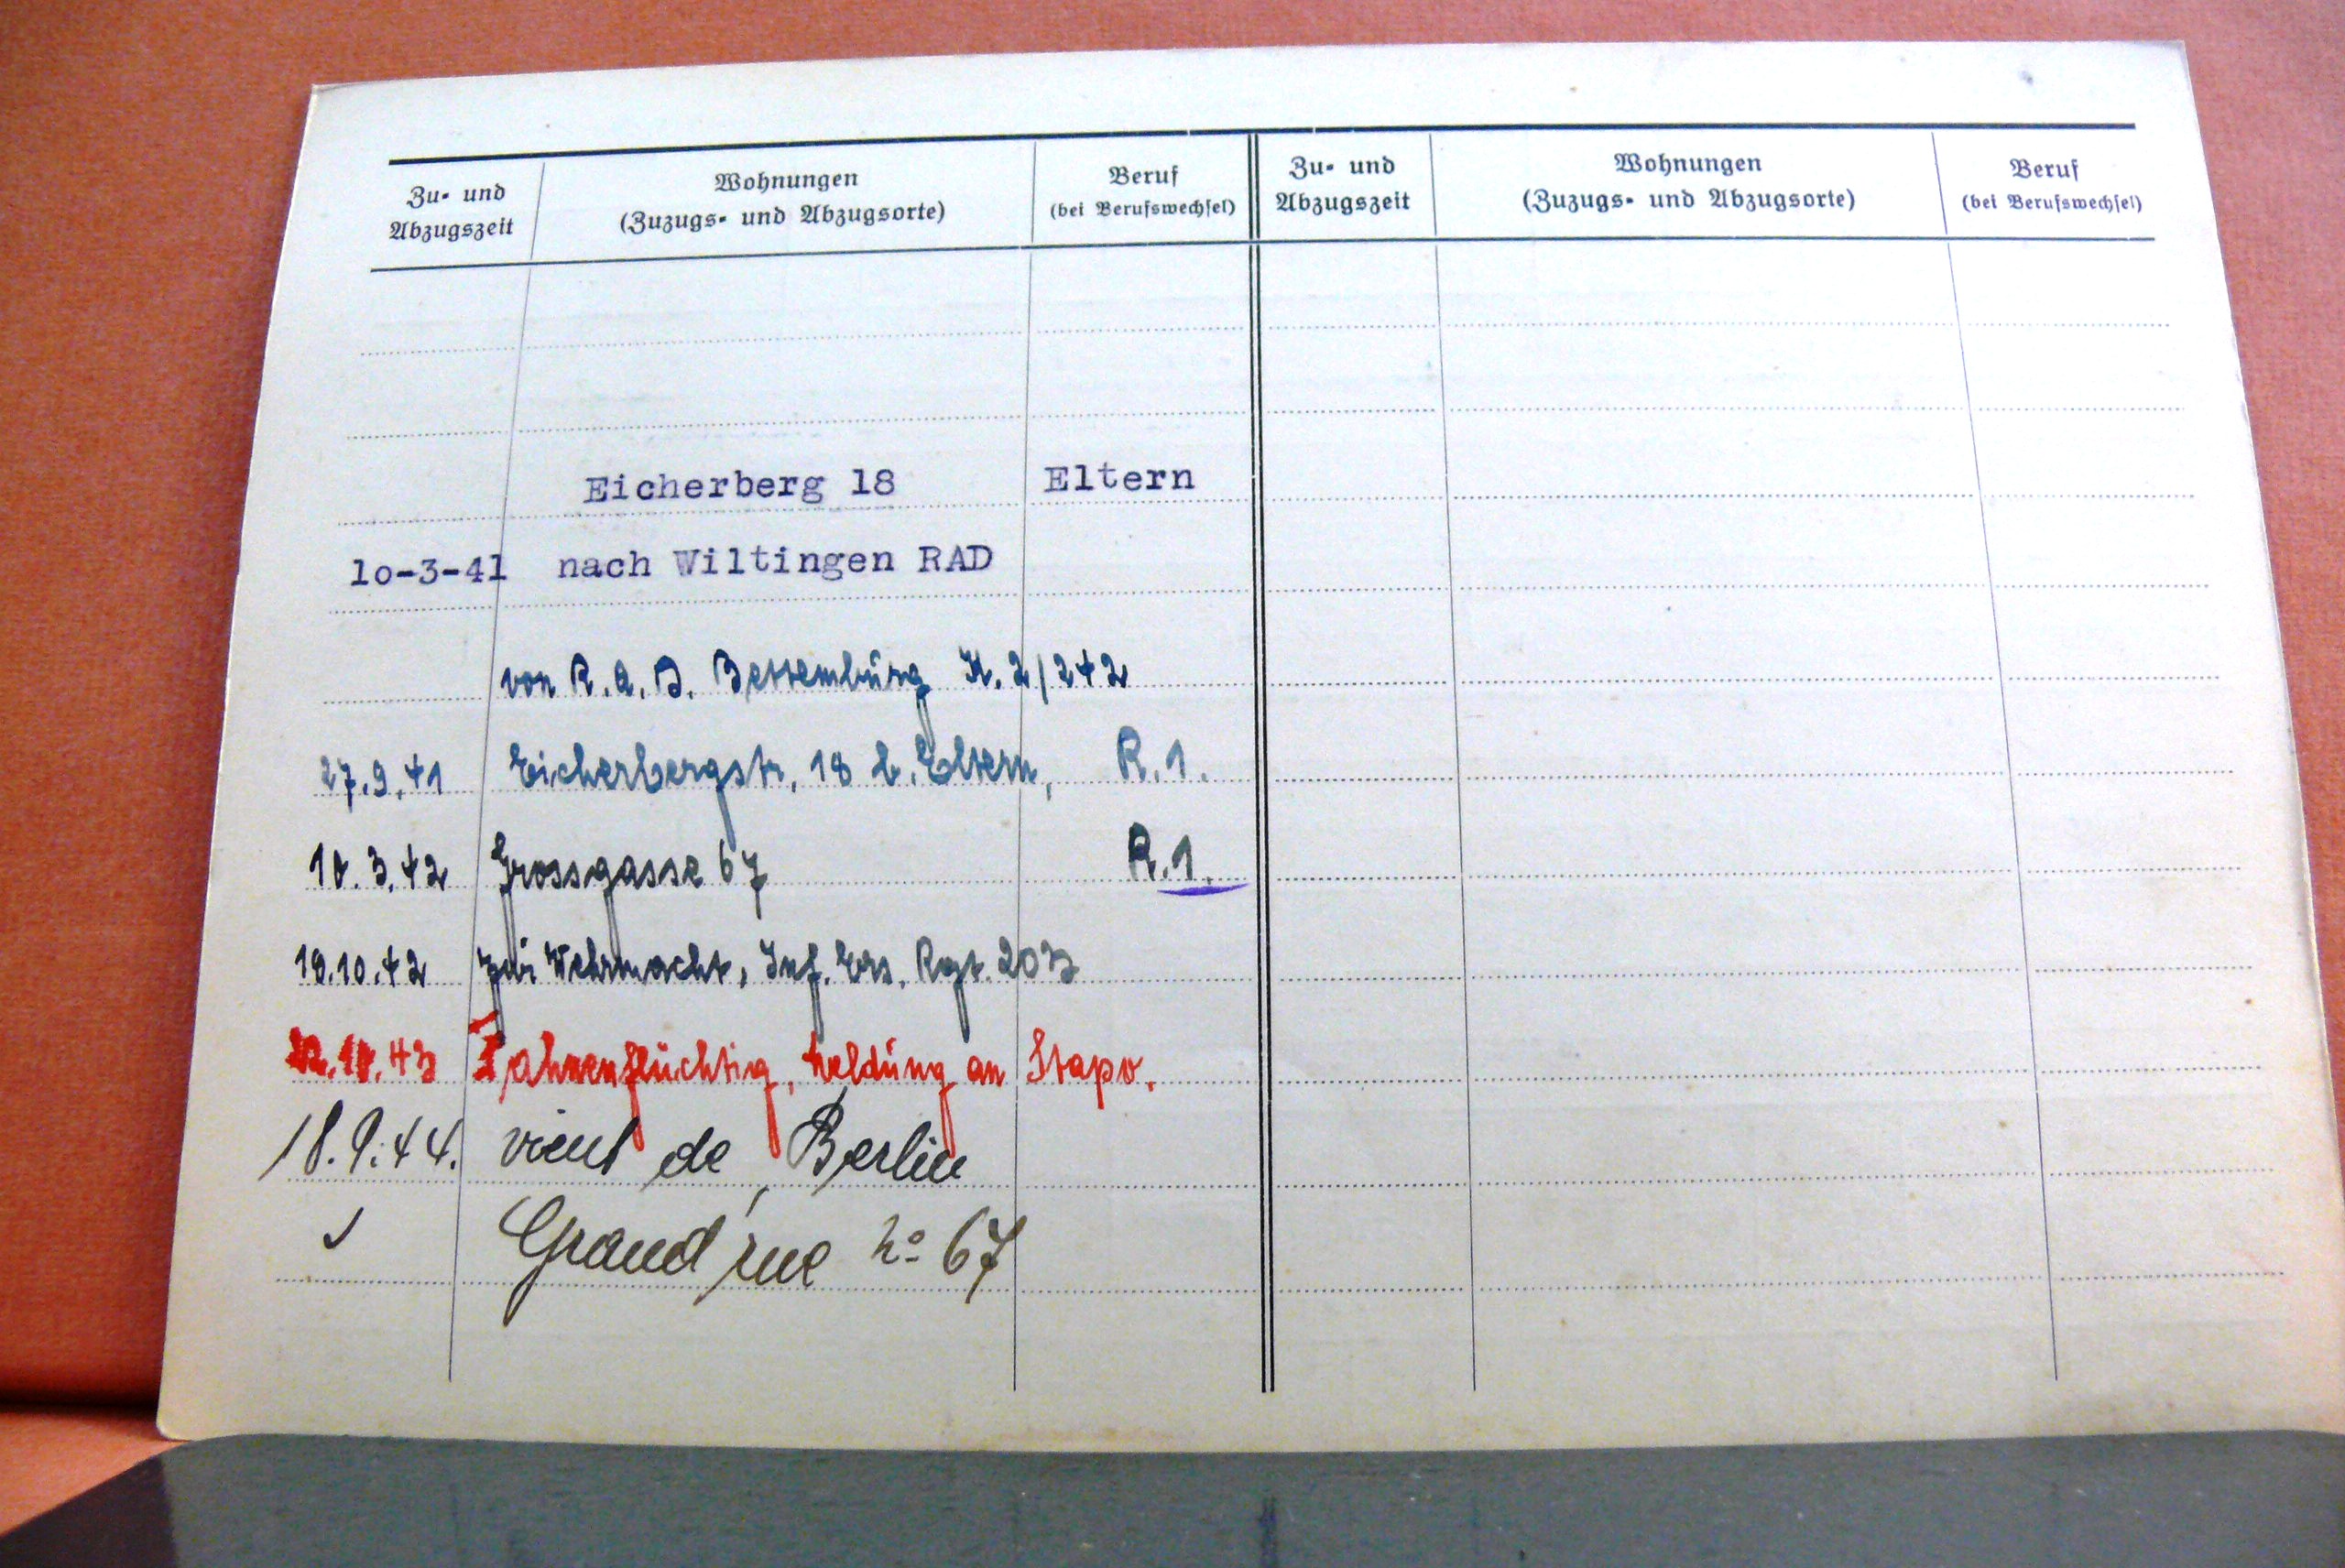 Zu- und Abzugszeit
Wohnungen (Zuzugs- und Abzugsorte)
Beruf (bei Berufswechsel)
Zu- und Abzugszeit
Wohnungen (Zuzugs- und Abzugsorte)
Beruf (bei Berufswechsel)
Eicherberg 18 Eltern
10-3-41 nach Wiltingen RAD
von R.A.D. Bettemburg K. 2/242
27.9.41 Eicherbergstr. 18 b. Eltern, R.1.
10.3.42 Grossgasse 67 R.1.
19.10.42 zur Wehrmacht, Inf. Ers. Rgt. 203
43 Fahnenflüchtig, Meldung an Stapo.
18.9.44. vient de Berlin
Grand'rue no 67